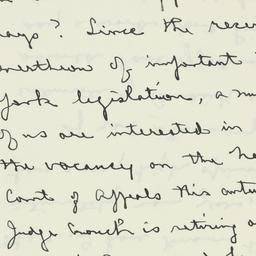 ays? Since the recen
overthrow of important
York legislation, a nu
of us are interested in
the vacancy on the Ne
Court of Appeals this autu
Judge Crouch is retiring a